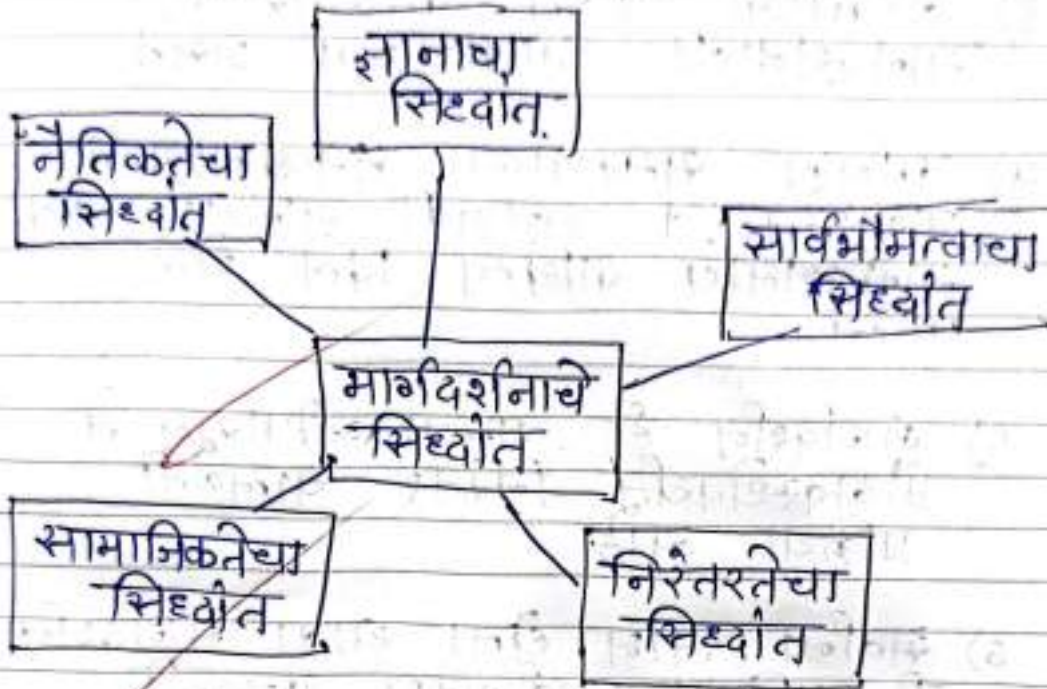 ज्ञानाचा
सिध्दांत.
नैतिकतेचा
सिध्दांत
सार्वभौमत्वाचा
सिध्दांत
मार्गदर्शनाचे
सिध्दांत.
सामाजिकतेचा
सिध्दांत
निरंतरतेचा
सिध्दांत